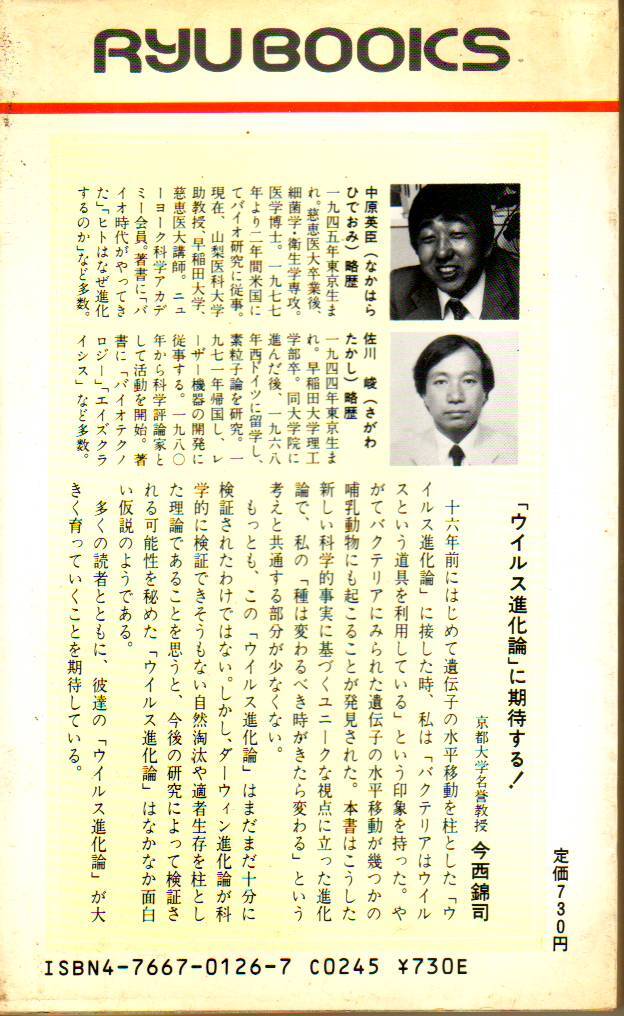 RYU BOOKS
中原英臣（なかはら
ひでおみ）略歴
一九四五年東京生ま
れ。慈恵医大卒業後、
細菌学・衛生学専攻。
医学博士。一九七七
年より二年間米国に
てバイオ研究に従事。
現在、山梨医科大学
助教授、早稲田大学、
慈恵医大講師。ニュ
ーヨーク科学アカデ
ミー会員。著書に「バ
イオ時代がやってき
た」「ヒトはなぜ進化
するのか」など多数。
佐川　峻（さがわ
たかし）略歴
一九四四年東京生ま
れ。早稲田大学理工
学部卒。同大学院に
進んだ後、一九六八
年西ドイツに留学し、
素粒子論を研究。一
九七一年帰国し、レ
ーザー機器の開発に
従事する。一九八〇
年から科学評論家と
して活動を開始。著
書に「バイオテクノ
ロジー」「エイズクラ
イシス」など多数。
「ウイルス進化論」に期待する！
京都大学名誉教授　今西錦司
十六年前にはじめて遺伝子の水平移動を柱とした「ウ
イルス進化論」に接した時、私は「バクテリアはウイル
スという道具を利用している」という印象を持った。や
がてバクテリアにみられた遺伝子の水平移動が幾つかの
哺乳動物にも起こることが発見された。本書はこうした
新しい科学的事実に基づくユニークな視点に立った進化
論で、私の「種は変わるべき時がきたら変わる」という
考えと共通する部分が少なくない。
もっとも、この「ウイルス進化論」はまだまだ十分に
検証されたわけではない。しかし、ダーウィン進化論が科
学的に検証できそうもない自然淘汰や適者生存を柱とし
た理論であることを思うと、今後の研究によって検証さ
れる可能性を秘めた「ウイルス進化論」はなかなか面白
い仮説のようである。
多くの読者とともに、彼達の「ウイルス進化論」が大
きく育っていくことを期待している。
定価730円
ISBN4-7667-0126-7 C0245 ¥730E